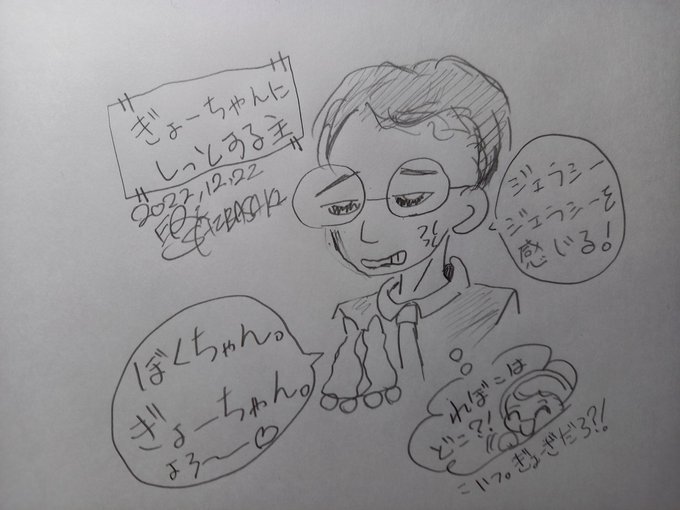 "ぎょーちゃんに
しっとする主"
2022,12,22
ジェラシー
ジェラシーを
感じる!
ぼくちゃん。
ぎょーちゃん。
よろ〜♡
ればこは
どこ?!
こいつ。ぎょーざだろ?!